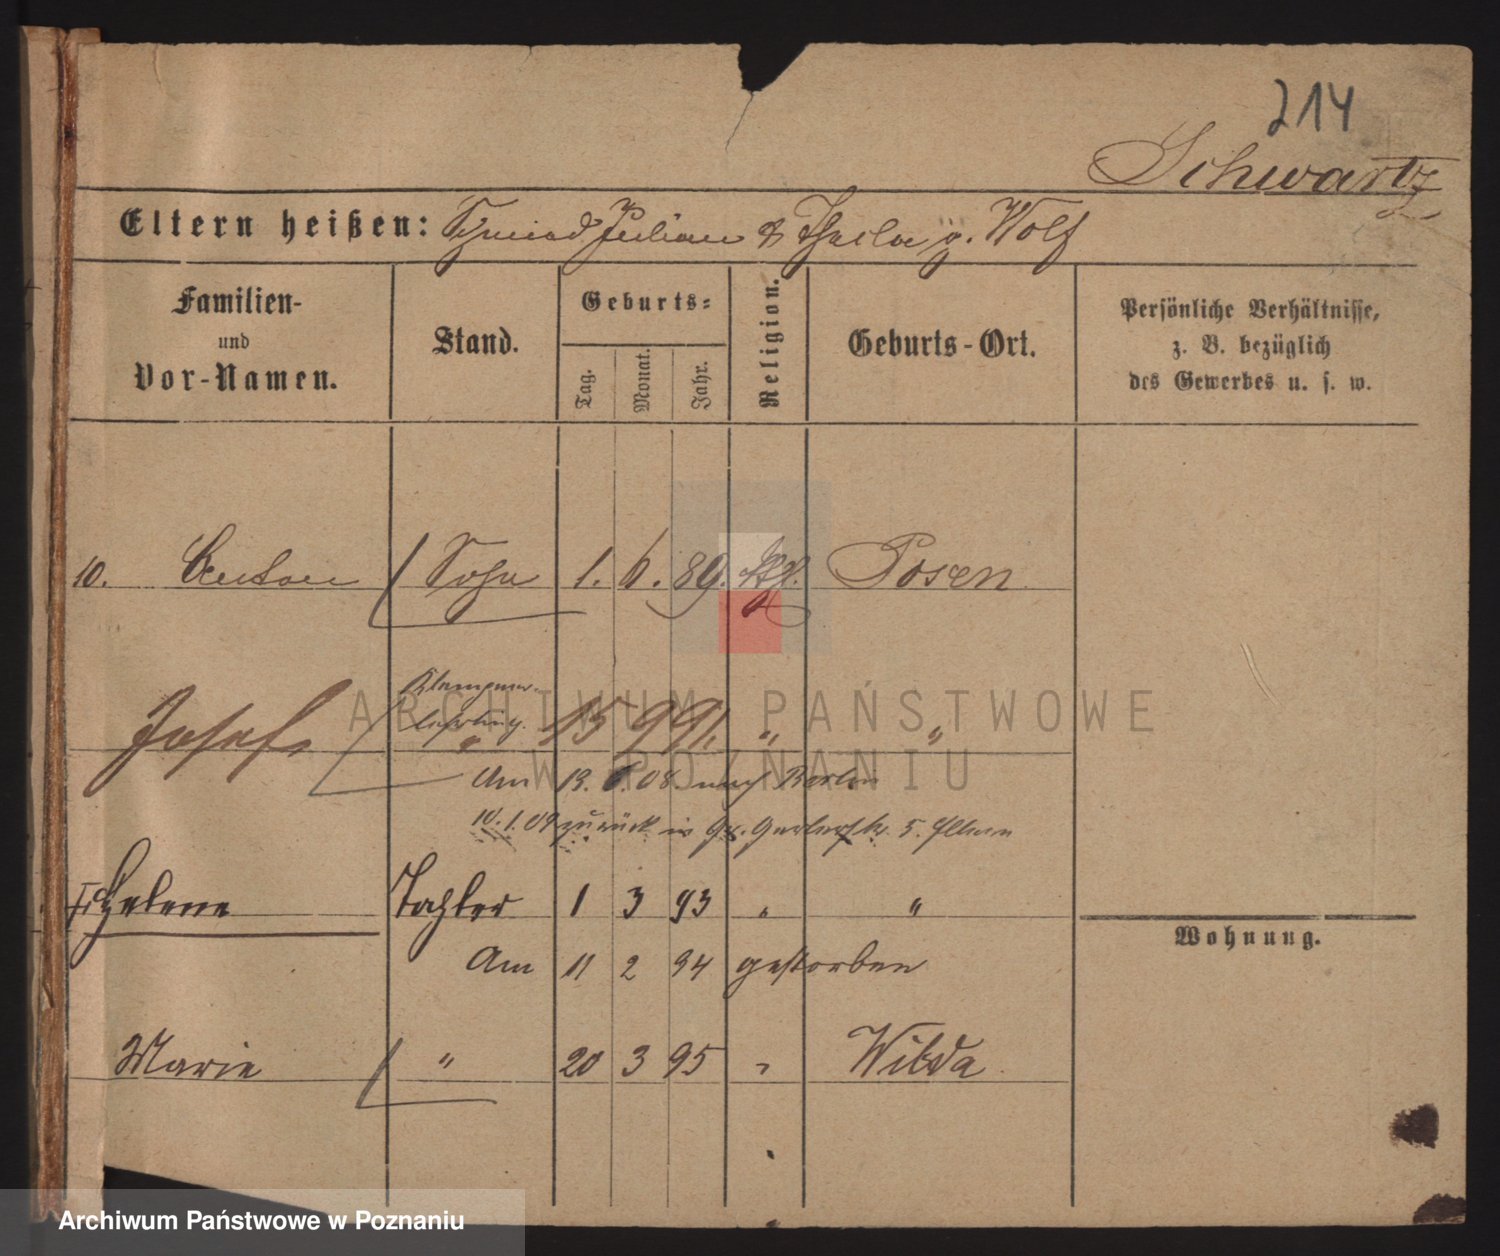 214
Schwartz
Eltern heißen: Schmied Julian & Thecla g. Wolf
Familien-
und
Vor-Namen.
Stand.
Geburts-
Tag.
Monat.
Jahr.
Religion.
Geburts-Ort.
Persönliche Verhältnisse,
z. B. bezüglich
des Gewerbes u. s. w.
10. Anton Sohn 1. 6. 89. kth. Posen
Klempner-
lehrling.
Josef " 15 9 91. " "
Am 13. 6. 08. nach Berlin
10.1.09 zurück in 5. Eltern
Helene Tochter 1 3 93 " "
Am 11 2 94 gestorben
Wohnung.
Marie " 20 3 95 " Wilda
ARCHIWUM PAŃSTWOWE
W POZNANIU
Archiwum Państwowe w Poznaniu